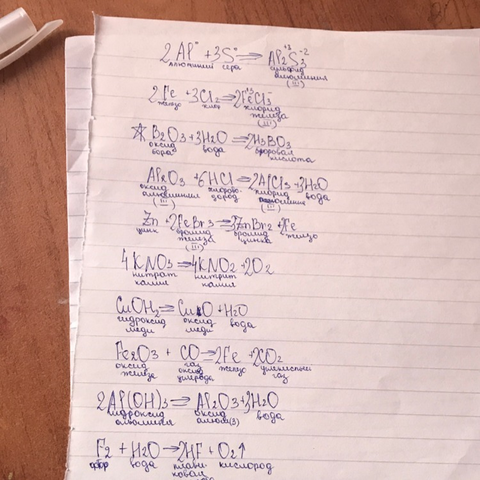 2Al° + 3S° ⇒ Al₂⁺³S₃⁻²
алюминий сера сульфид алюминия (III)
2Fe + 3Cl₂ ⇒ 2Fe⁺³Cl₃⁻
железо хлор хлорид железа (III)
* B₂O₃ + 3H₂O ⇒ 2H₃BO₃
оксид бора вода боровая кислота
Al₂O₃ + 6HCl ⇒ 2AlCl₃ + 3H₂O
оксид алюминия (III) хлороводород хлорид алюминия (III) вода
Zn + 2FeBr₃ ⇒ 3ZnBr₂ + Fe
цинк бромид железа (III) бромид цинка железо
4KNO₃ ⇒ 4KNO₂ + 2O₂
нитрат калия нитрит калия
CuOH₂ ⇒ CuO + H₂O
гидроксид меди оксид меди вода
Fe₂O₃ + CO ⇒ 2Fe + 2CO₂
оксид железа газ оксид углерода железо углекислый газ
2Al(OH)₃ ⇒ Al₂O₃ + 3H₂O
гидроксид алюминия оксид вода
F₂ + H₂O → 2HF + O₂↑
фтор вода плавиковая кислород